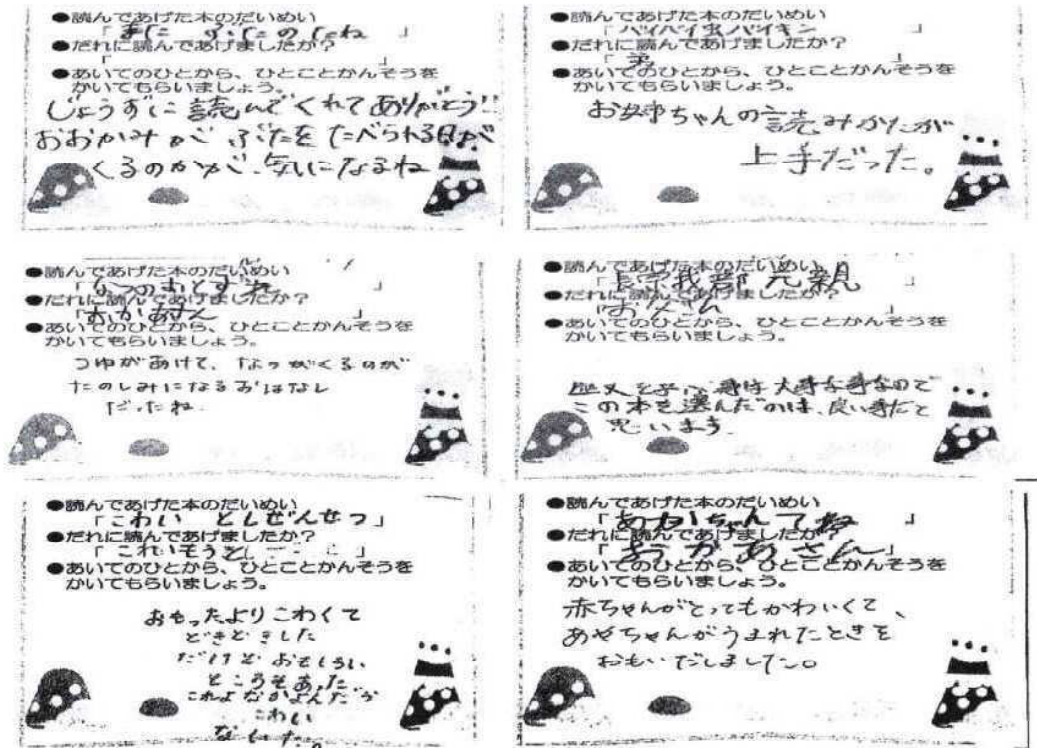 ●読んであげた本のだいめい
「また ぶたのたね 」
●だれに読んであげましたか?
「 」
●あいてのひとから、ひとことかんそうを
かいてもらいましょう。
じょうずに読んでくれてありがとう!!
おおかみが ぶたをたべられる日が
くるのかが、気になるね
●読んであげた本のだいめい
「バイバイ虫バイキン 」
●だれに読んであげましたか?
「弟 」
●あいてのひとから、ひとことかんそうを
かいてもらいましょう。
お姉ちゃんの読みかたが
上手だった。
●読んであげた本のだいめい
「なつのおとずれ 」
●だれに読んであげましたか?
「おかあさん 」
●あいてのひとから、ひとことかんそうを
かいてもらいましょう。
つゆがあけて、なつがくるのが
たのしみになるおはなし
だったね。
●読んであげた本のだいめい
「長宗我部元親 」
●だれに読んであげましたか?
「お父さん 」
●あいてのひとから、ひとことかんそうを
かいてもらいましょう。
歴史を学ぶ事は大事な事なので
この本を選んだのは、良い事だと
思います。
●読んであげた本のだいめい
「こわい としでんせつ」
●だれに読んであげましたか?
●あいてのひとから、ひとことかんそうを
かいてもらいましょう。
おもったよりこわくて
どきどきした
だけど おもしろい
ところもあった
こわい
●読んであげた本のだいめい
「あかちゃんてね 」
●だれに読んであげましたか?
「おかあさん」
●あいてのひとから、ひとことかんそうを
かいてもらいましょう。
赤ちゃんがとってもかわいくて、
あやちゃんがうまれたときを
おもいだしました。